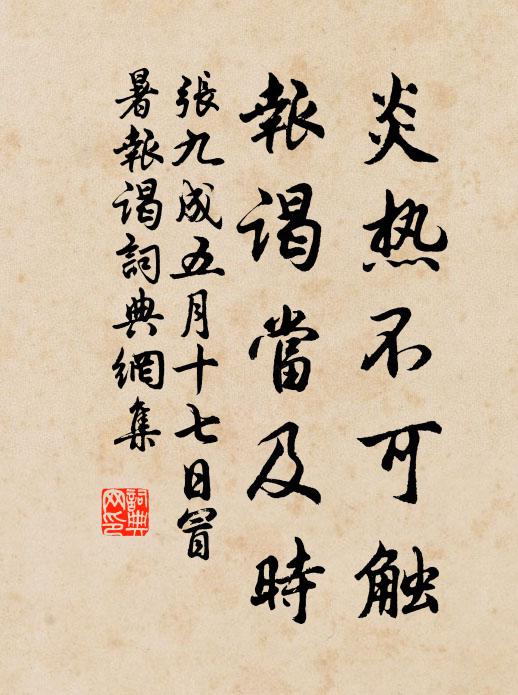 炎热不可触
報谒當及時
張九成五月十七日冒
暑報谒詞典網集
詞典
网印